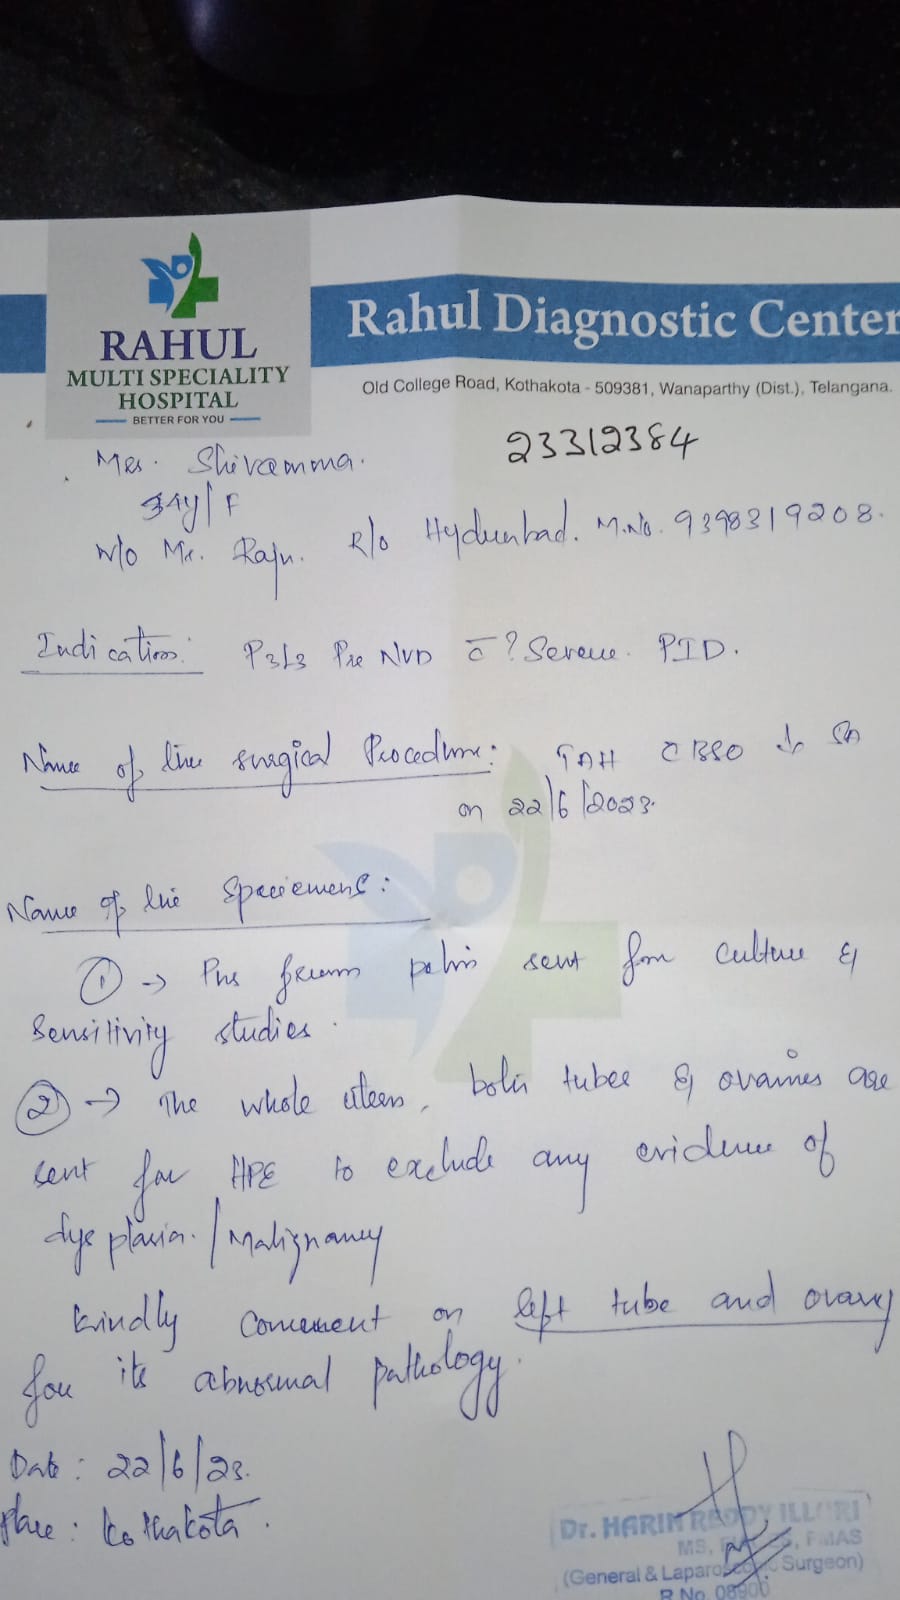 RAHUL
MULTI SPECIALITY
HOSPITAL
BETTER FOR YOU
Rahul Diagnostic Center
Old College Road, Kothakota - 509381, Wanaparthy (Dist.), Telangana.
23312384
Mrs. Shivamma.
34y/F
W/o Mr. Raju. R/o Hyderabad. M.No. 9398319208.
Indication: P3L3 Pre NVD c̄ ? Severe PID.
Name of the surgical Procedure: TAH c̄ BSO SA
on 22/6/2023.
Name of the Speciemens:
① → Pus from pelvis sent for culture &
Sensitivity studies.
② → The whole uterus, both tubes & ovaries are
sent for HPE to exclude any evidence of
dysplasia/Malignancy
kindly comment on left tube and ovary
for its abnormal pathology.
Date: 22/6/23.
Place: Kothakota.
Dr. HARIN REDDY ILLURI
MS, FMAS
(General & Laparoscopic Surgeon)